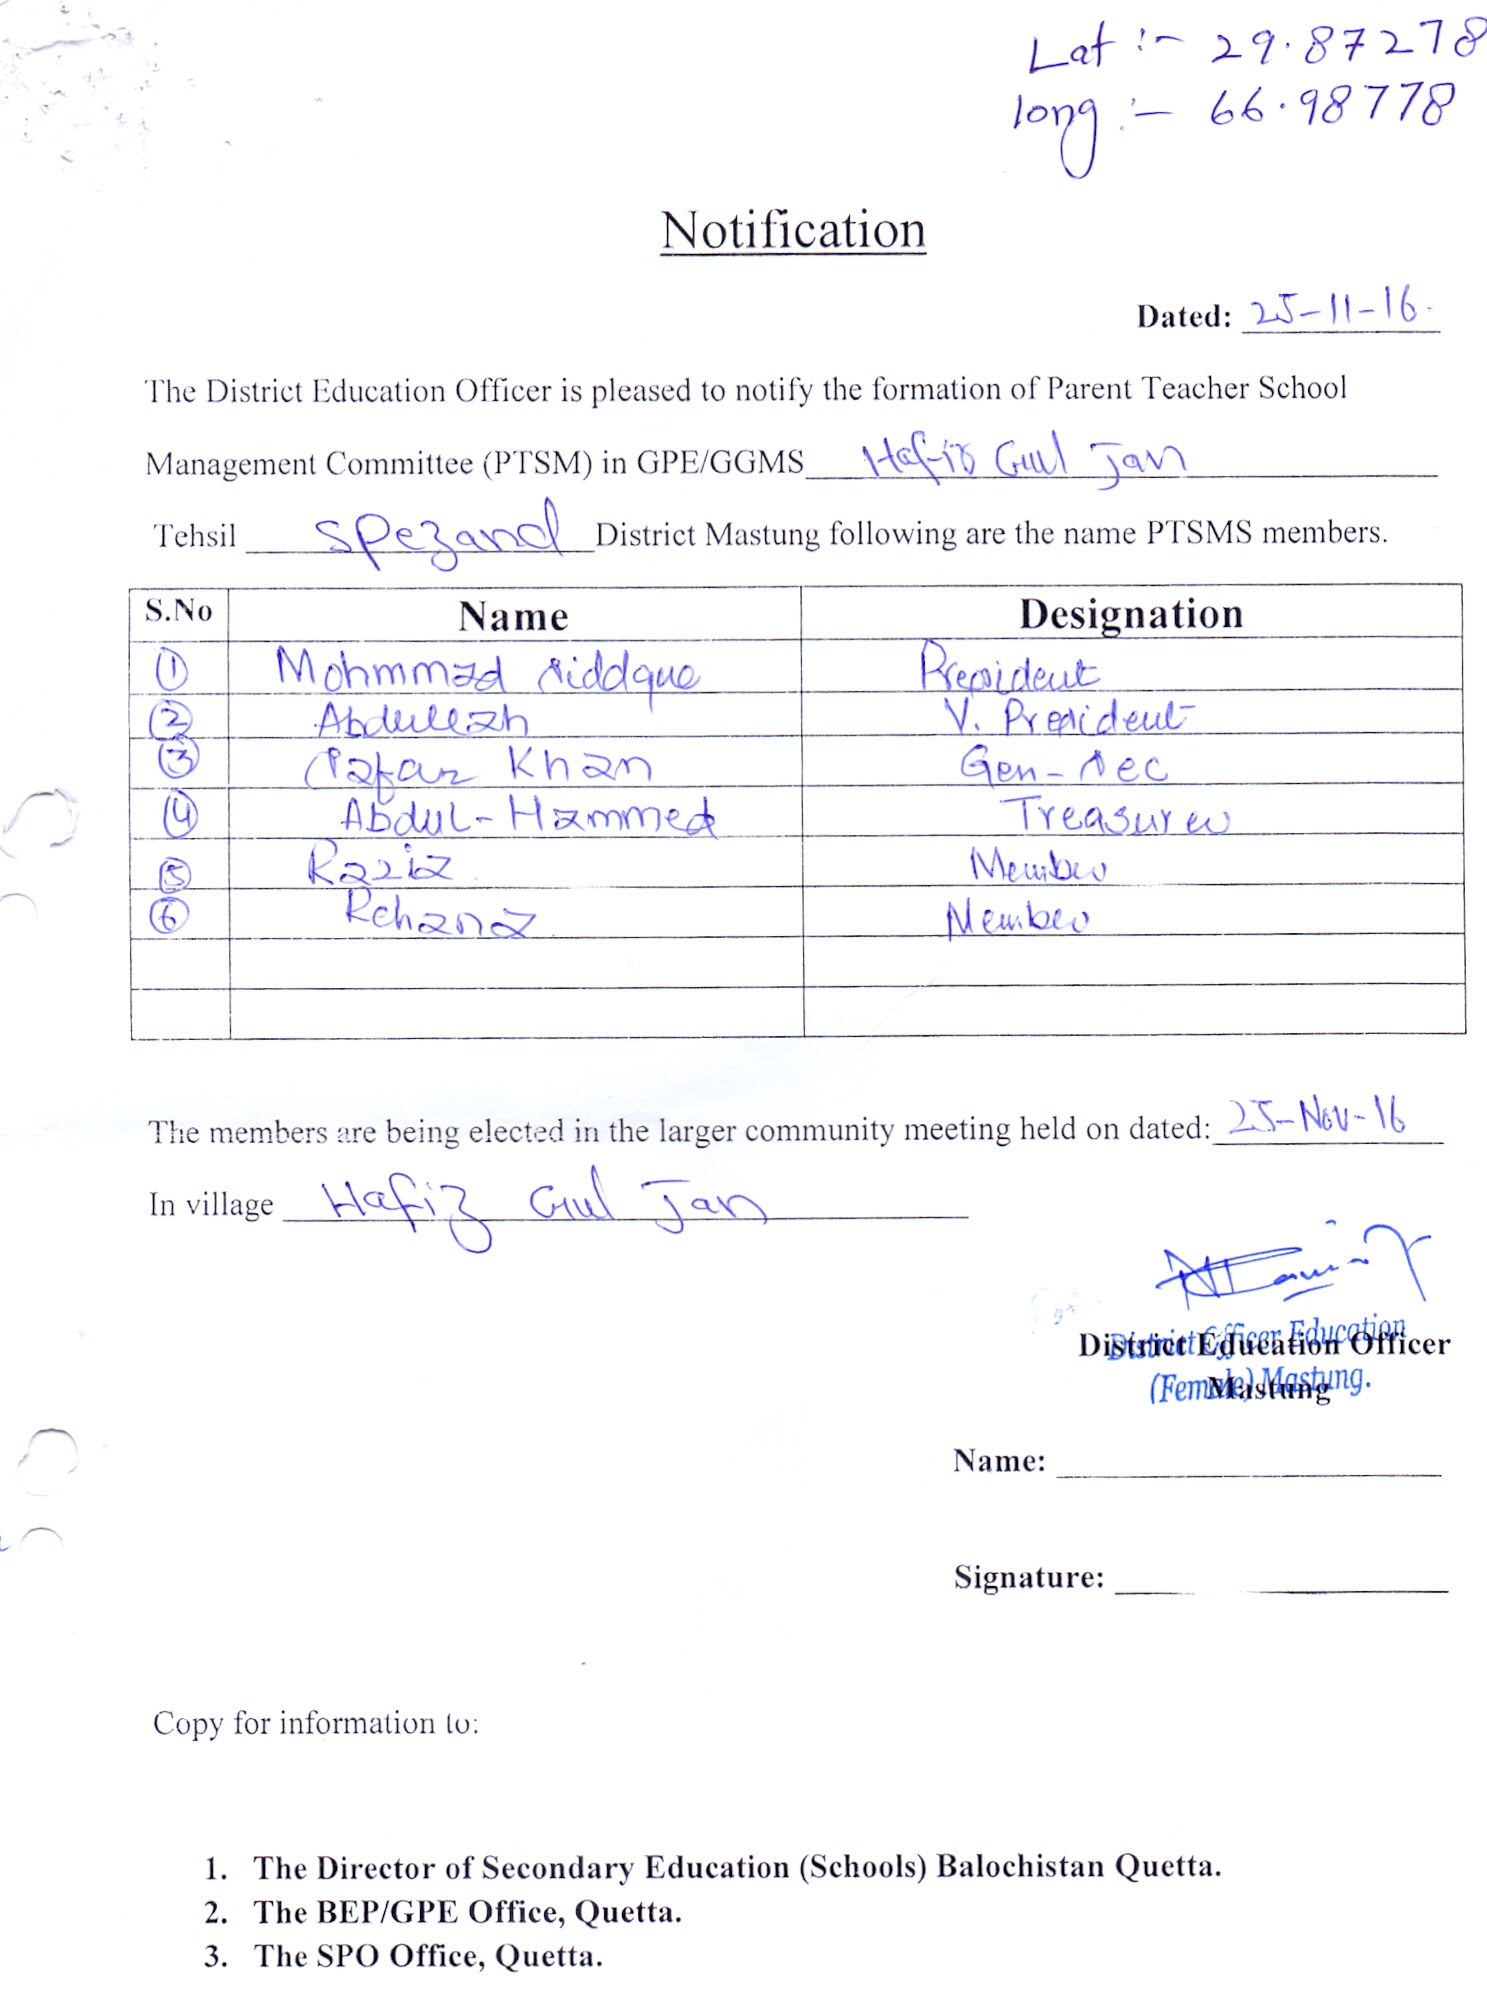 Lat :- 29.87278
long :- 66.98778
Notification
Dated: 25-11-16.
The District Education Officer is pleased to notify the formation of Parent Teacher School
Management Committee (PTSM) in GPE/GGMS Hafiz Gul Jan
Tehsil Spezand District Mastung following are the name PTSMS members.
S.No Name Designation
1 Mohmmad Siddque President
2 Abdullah V. President
3 Khan Gen-Sec
4 Abdul-Hammed Treasurer
5 Razia Member
6 Rehana Member
The members are being elected in the larger community meeting held on dated: 25-Nov-16
In village Hafiz Gul Jan
District Officer Education
(Female) Mastung.
District Education Officer
Mastung
Name:
Signature:
Copy for information to:
1. The Director of Secondary Education (Schools) Balochistan Quetta.
2. The BEP/GPE Office, Quetta.
3. The SPO Office, Quetta.